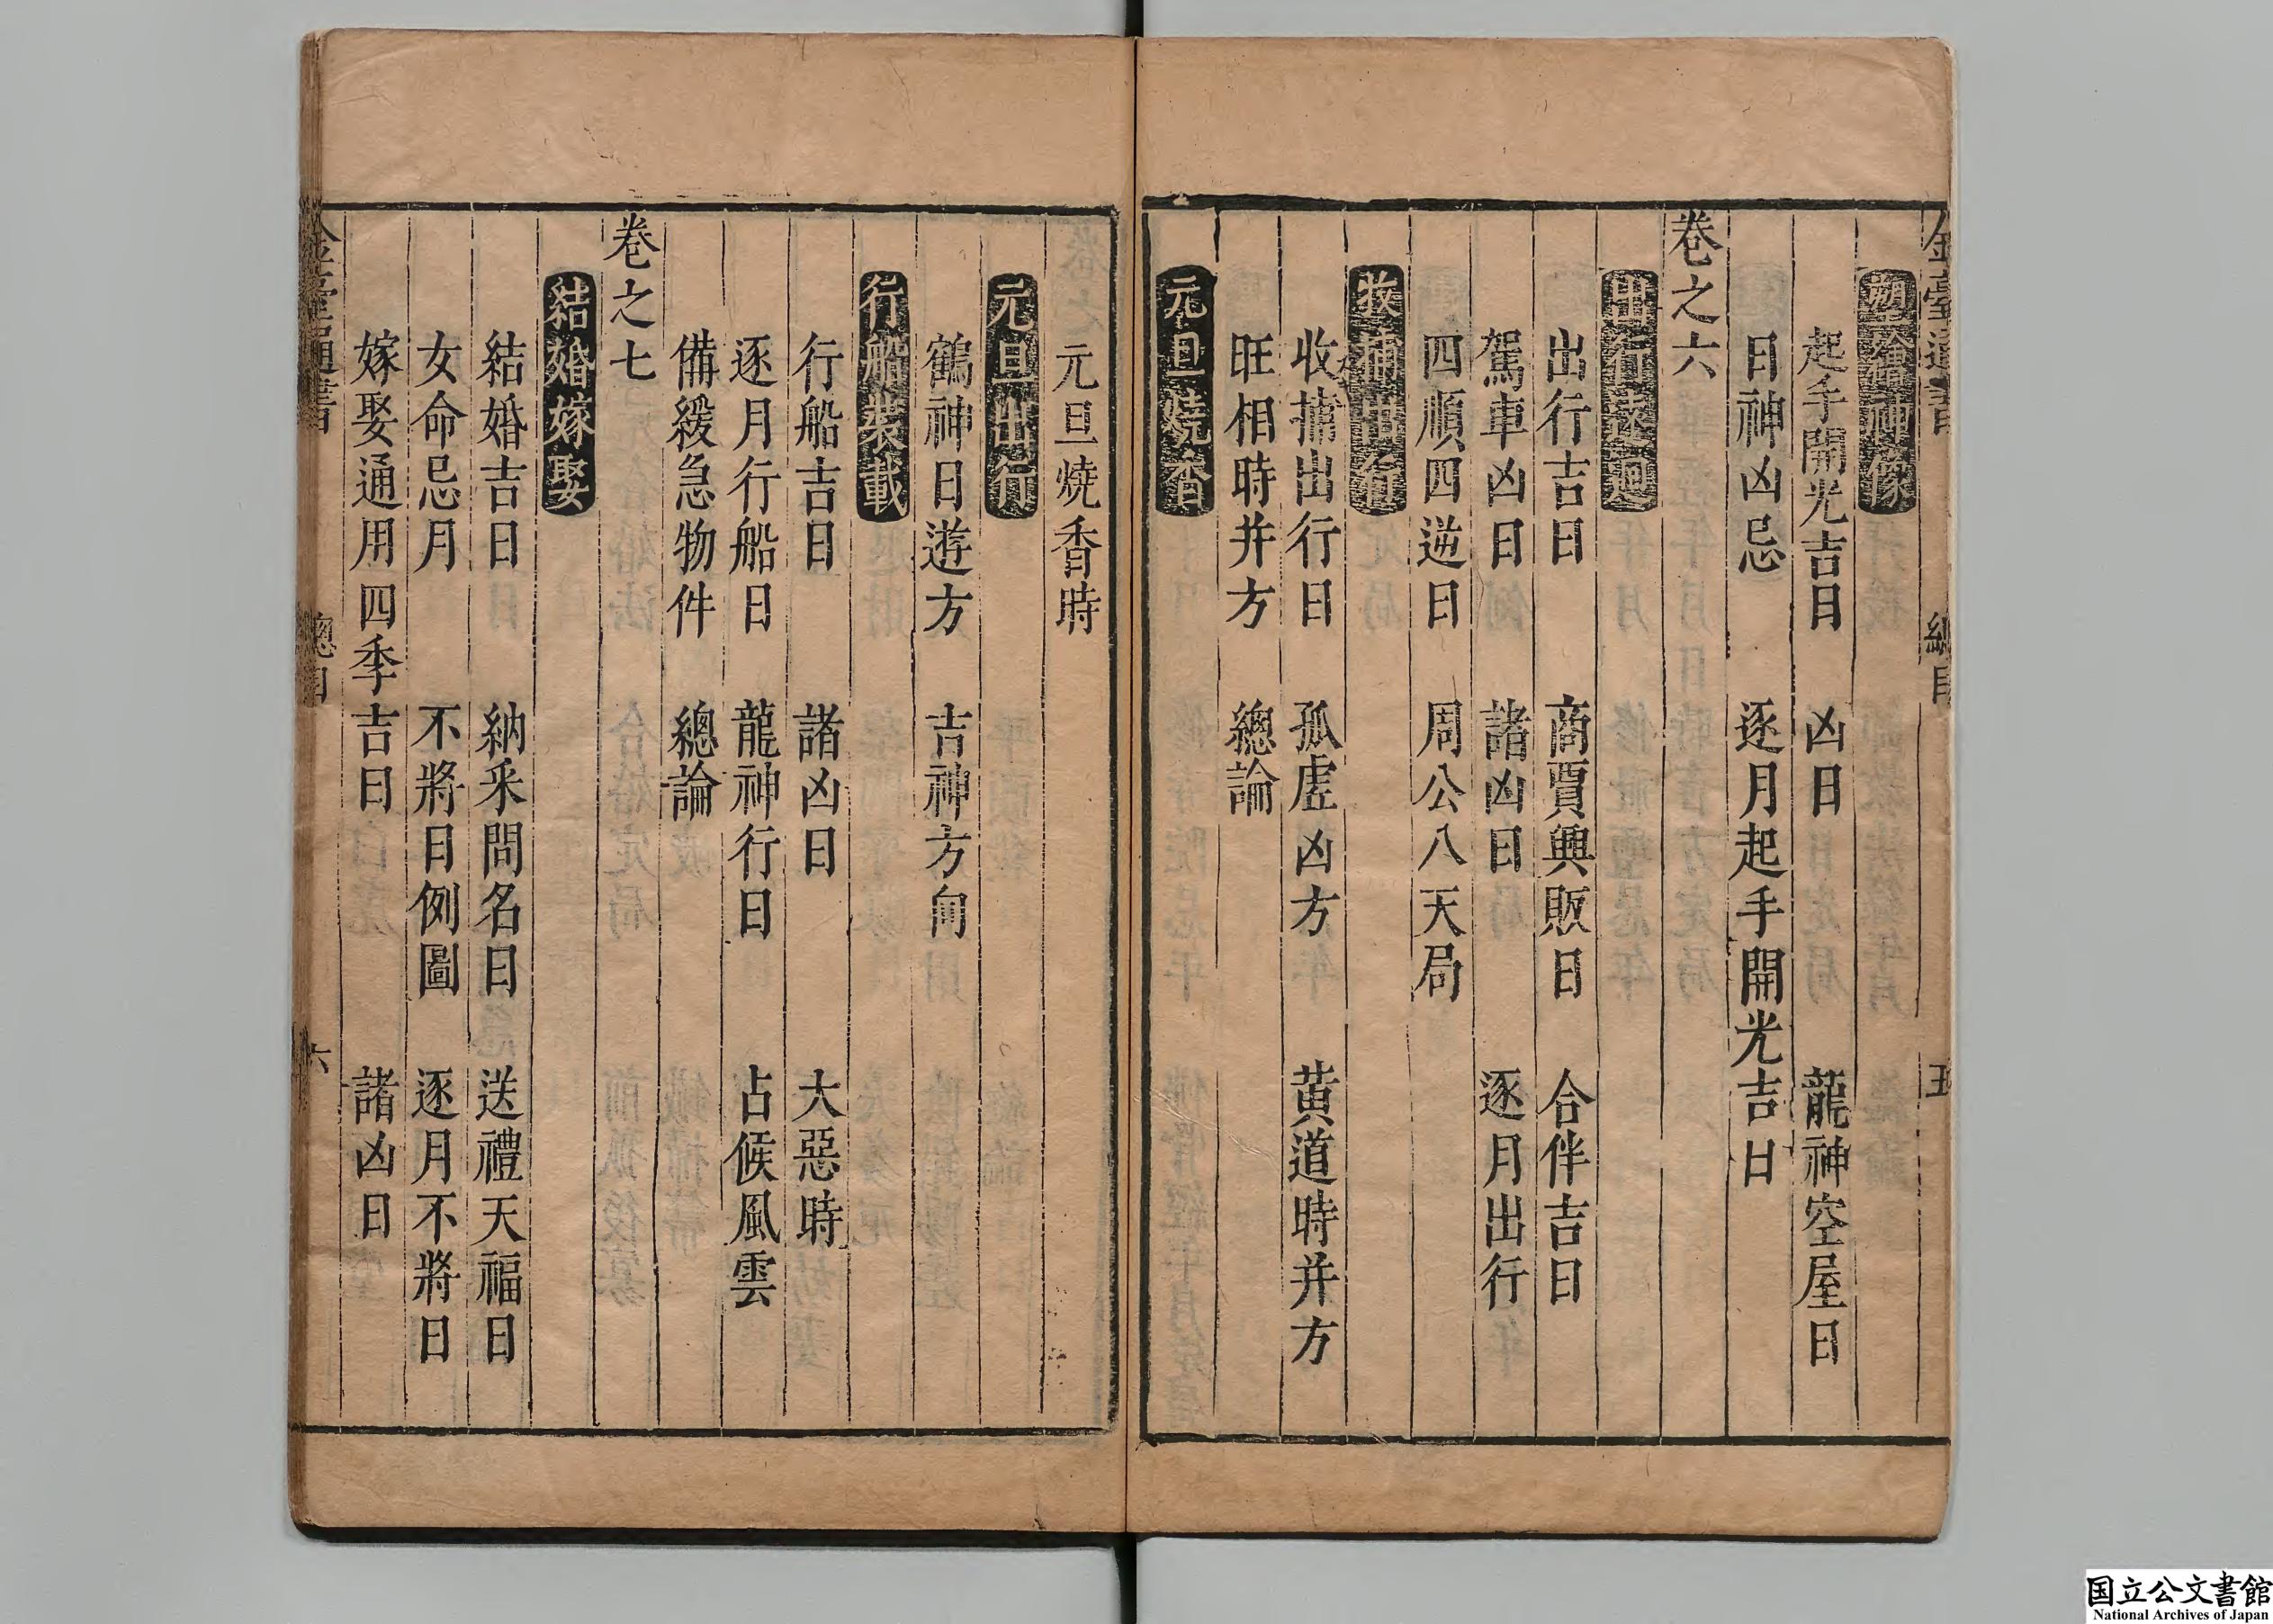 金臺通書 總目 五
塑繪神像
起手開光吉日 凶日 龍神空屋日
日神凶忌 逐月起手開光吉日
卷之六
出行遠迴
出行吉日 商賈興販日 合伴吉日
駕車凶日 諸凶日 逐月出行
四順四逆日 周公八天局
收捕出行
收捕出行日 孤虛凶方 黃道時并方
旺相時并方 總論
元旦燒香
元旦燒香時
元旦出行
鶴神日遊方 吉神方向
行船裝載
行船吉日 諸凶日 大惡時
逐月行船日 龍神行日 占候風雲
備緩急物件 總論
卷之七
結婚嫁娶
結婚吉日 納采問名日 送禮天福日
女命忌月 不將日例圖 逐月不將日
嫁娶通用四季吉日 諸凶日
金臺通書 總目 六
国立公文書館
National Archives of Japan